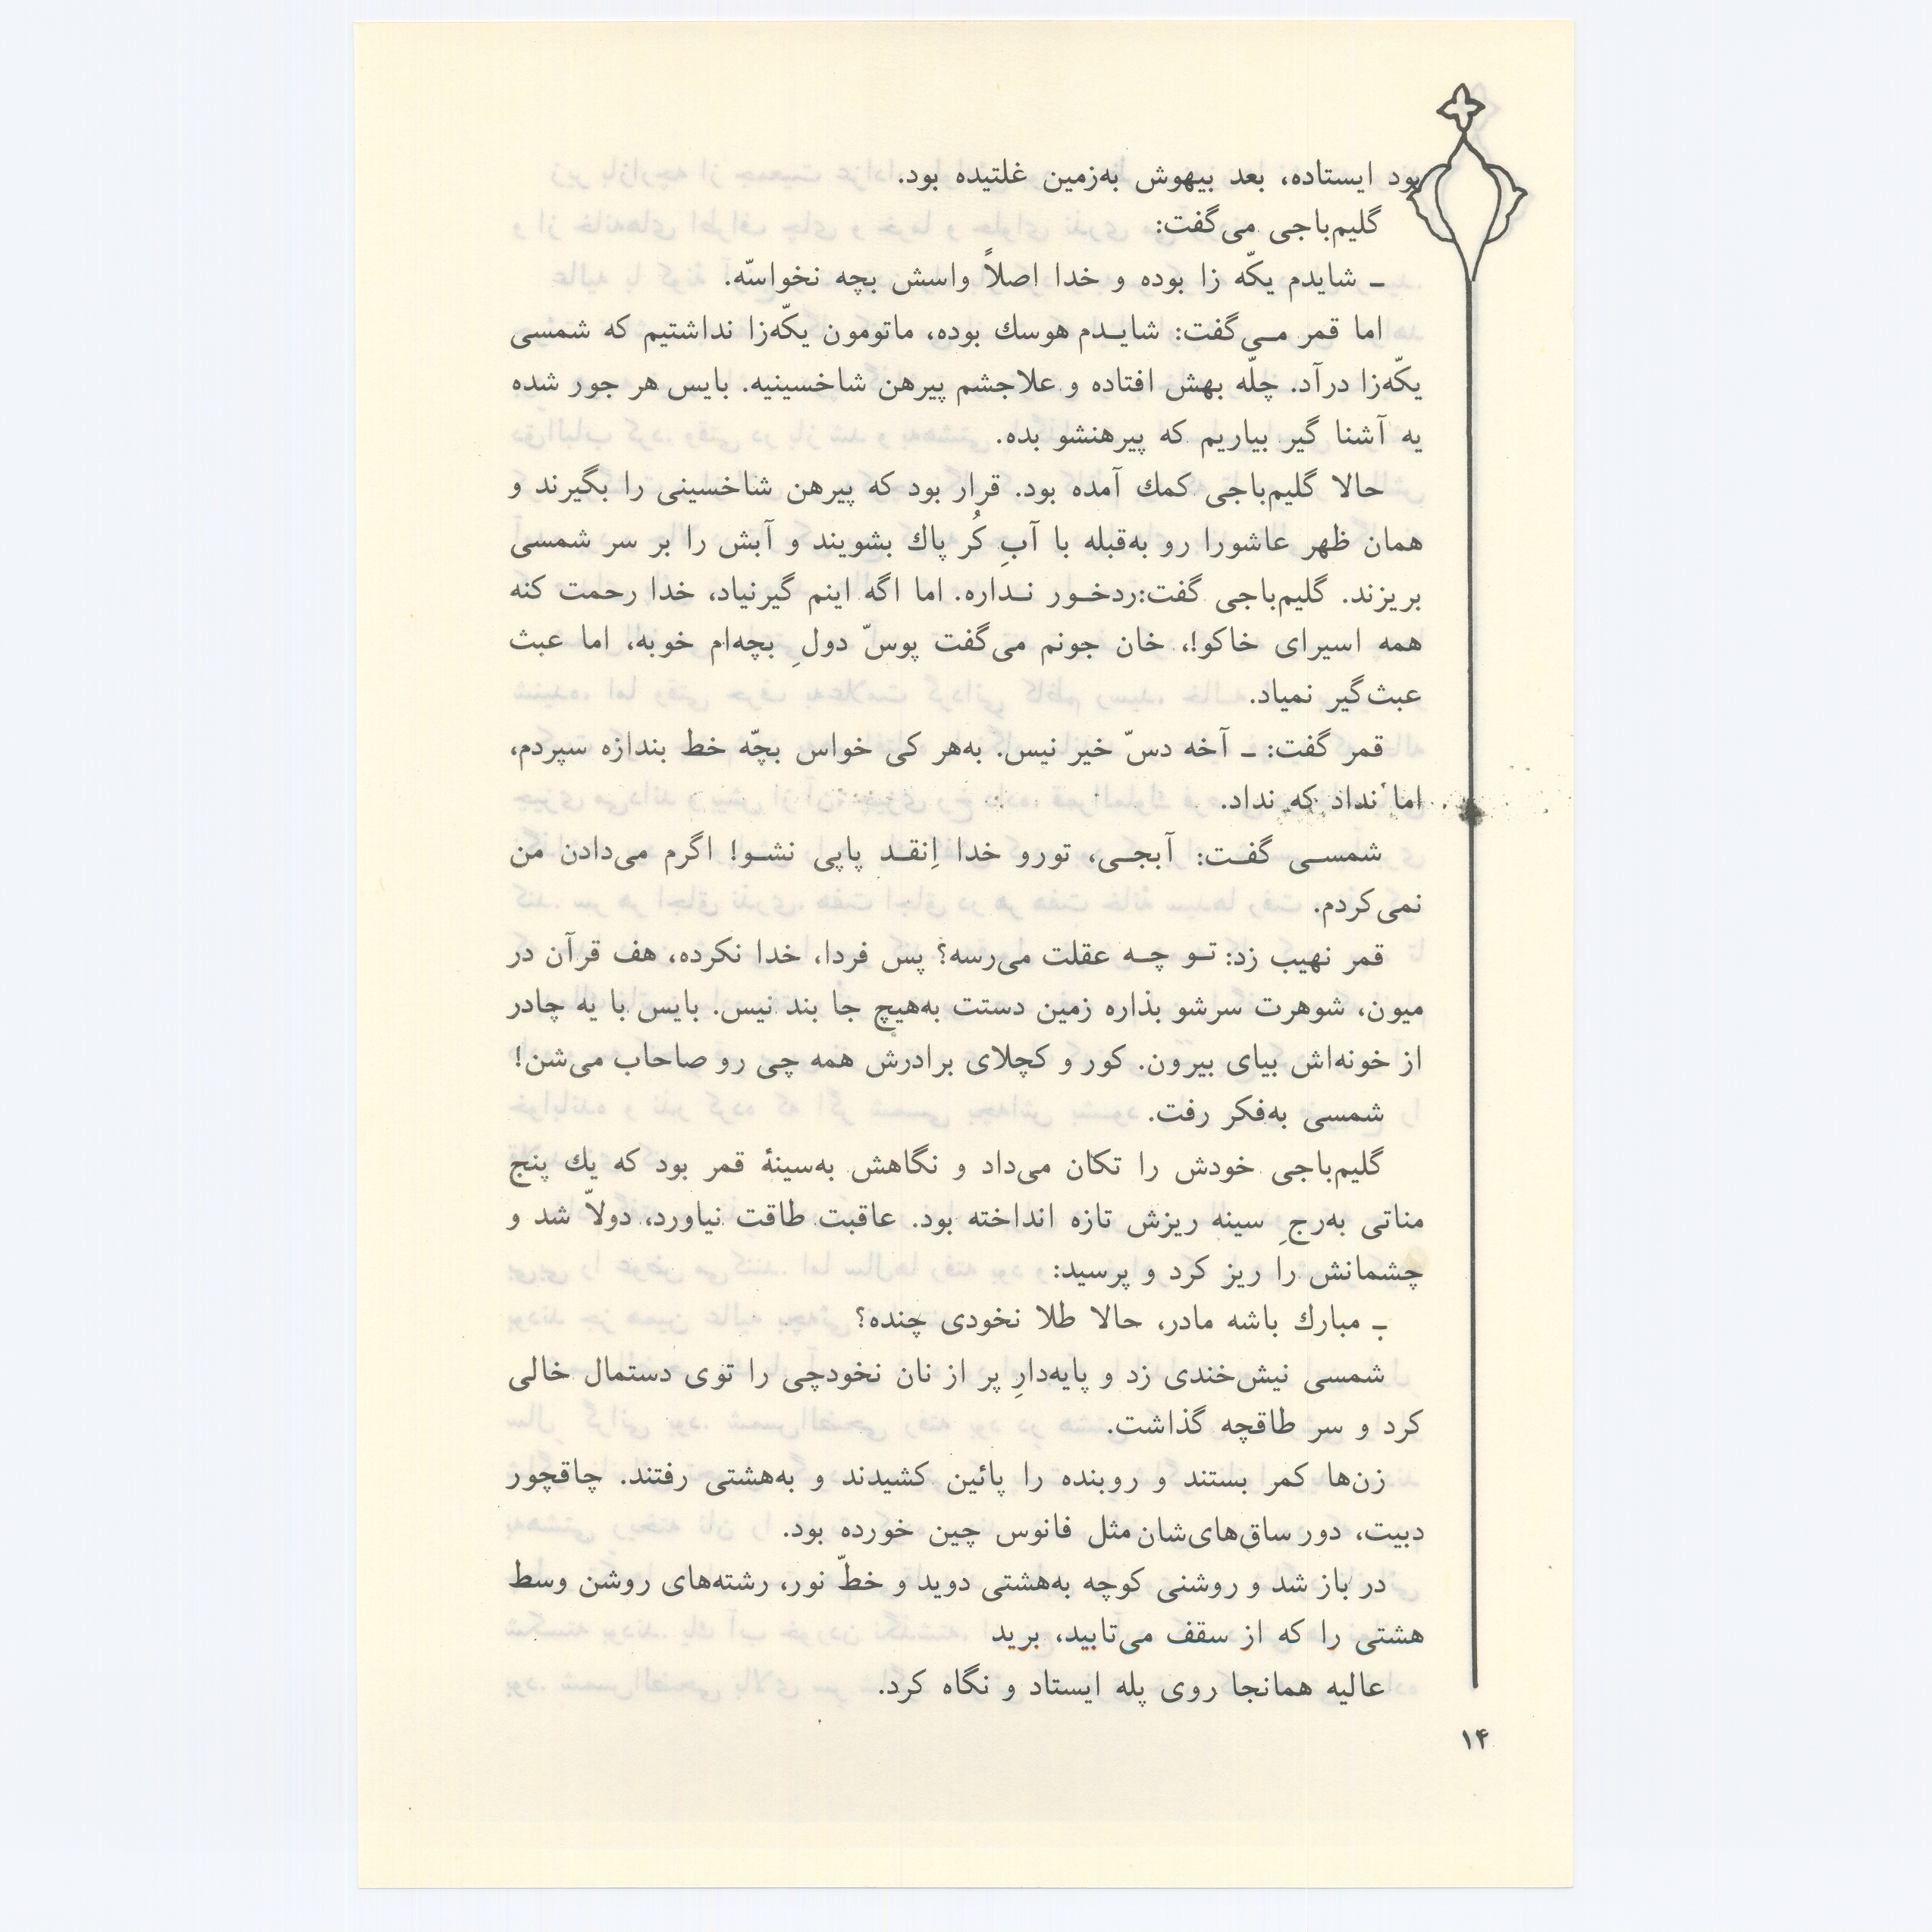 بود ایستاده، بعد بیهوش به‌زمین غلتیده بود.
گلیم‌باجی می‌گفت:
ـ شایدم یکّه زا بوده و خدا اصلاً واسش بچه نخواسّه.
اما قمر مـی‌گفت: شایـدم هوسك بوده، ماتومون یکّه‌زا نداشتیم که شمسی
یکّه‌زا درآد. چلّه بهش افتاده و علاجشم پیرهن شاخسینیه. بایس هر جور شده
یه آشنا گیر بیاریم که پیرهنشو بده.
حالا گلیم‌باجی کمك آمده بود. قرار بود که پیرهن شاخسینی را بگیرند و
همان ظهر عاشورا رو به‌قبله با آبِ کُر پاك بشویند و آبش را بر سر شمسی
بریزند. گلیم‌باجی گفت:ردخـور نـداره. اما اگه اینم گیرنیاد، خدا رحمت کنه
همه اسیرای خاکو!، خان جونم می‌گفت پوسّ دولِ بچه‌ام خوبه، اما عبث
عبث‌گیر نمیاد.
قمر گفت: ـ آخه دسّ خیر نیس. به‌هر کی خواس بچّه خط بندازه سپردم،
اما نداد که نداد.
شمسـی گفـت: آبجـی، تورو خدا اِنقـد پاپی نشـو! اگرم می‌دادن من
نمی‌کردم.
قمر نهیب زد: تـو چـه عقلت می‌رسه؟ پس فردا، خدا نکرده، هف قرآن در
میون، شوهرت سرشو بذاره زمین دستت به‌هیچ جا بند نیس. بایس با یه چادر
از خونه‌اش بیای بیرون. کور و کچلای برادرش همه چی رو صاحاب می‌شن!
شمسی به‌فکر رفت.
گلیم‌باجی خودش را تکان می‌داد و نگاهش به‌سینهٔ قمر بود که یك پنج
مناتی به‌رجِ سینه ریزش تازه انداخته بود. عاقبت طاقت نیاورد، دولاّ شد و
چشمانش را ریز کرد و پرسید:
ـ مبارك باشه مادر، حالا طلا نخودی چنده؟
شمسی نیش‌خندی زد و پایه‌دارِ پر از نان نخودچی را توی دستمال خالی
کرد و سر طاقچه گذاشت.
زن‌ها کمر بستند و روبنده را پائین کشیدند و به‌هشتی رفتند. چاقچور
دبیت، دور ساق‌های‌شان مثل فانوس چین خورده بود.
در باز شد و روشنی کوچه به‌هشتی دوید و خطّ نور، رشته‌های روشن وسط
هشتی را که از سقف می‌تابید، برید
عالیه همانجا روی پله ایستاد و نگاه کرد.
۱۴